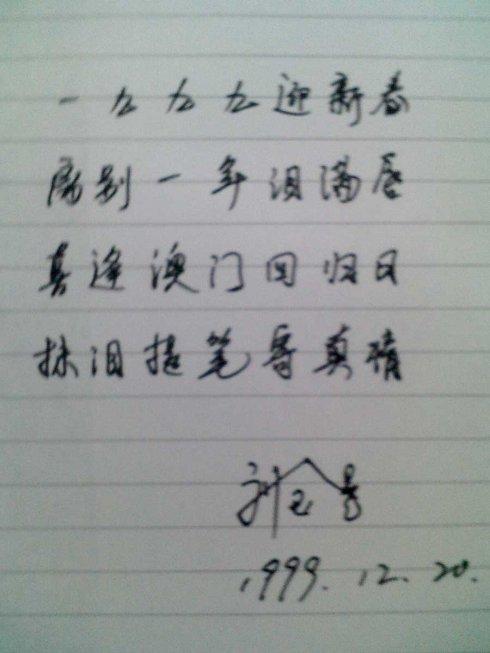 一九九九迎新春
离别一年泪满唇
喜逢澳门回归日
抹泪提笔寄真情
1999.12.20.